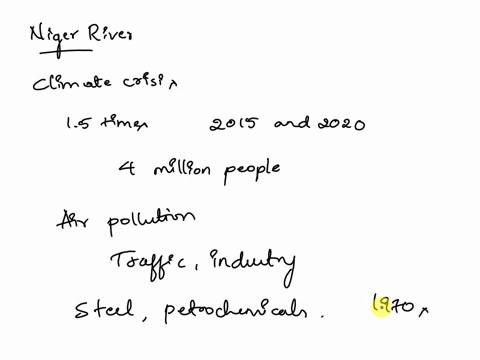 Niger River
Climate crisis
1.5 times 2015 and 2020
4 million people
Air pollution
Traffic, industry
Steel, petrochemicals. 1970s